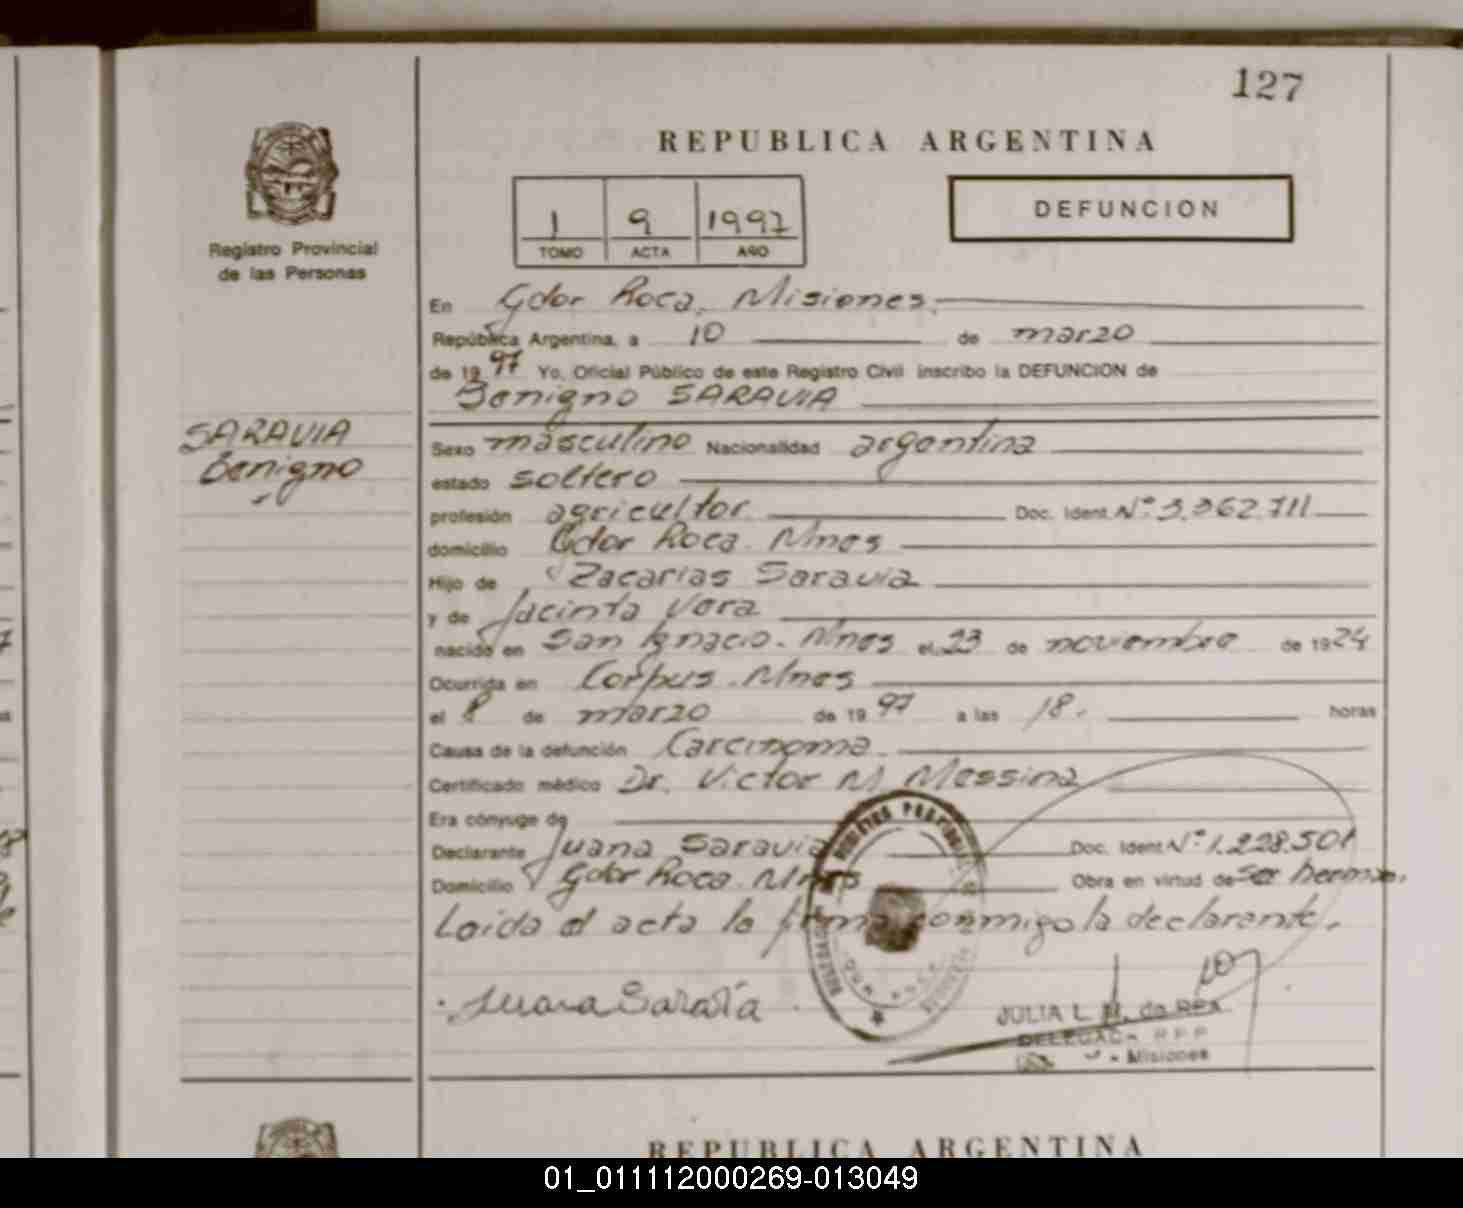 127
REPUBLICA ARGENTINA
1 9 1997
TOMO ACTA AÑO
DEFUNCION
Registro Provincial
de las Personas
En Gdor Roca, Misiones.
República Argentina, a 10 de marzo
de 1997 Yo, Oficial Público de este Registro Civil inscribo la DEFUNCION de
Benigno SARAVIA
SARAVIA
Benigno
Sexo masculino Nacionalidad argentina
estado soltero
profesión agricultor Doc. Ident. Nº 3.362.711
domicilio Gdor Roca. Mnes
Hijo de Zacarias Saravia
y de Jacinta Vera
nacido en San Ignacio. Mnes el 23 de noviembre de 1924
Ocurrida en Corpus. Mnes
el 8 de marzo de 1997 a las 18. horas
Causa de la defunción Carcinoma
Certificado médico Dr. Victor M. Messina
Era cónyuge de
Declarante Juana Saravia Doc. Ident. Nº 1.228.501
Domicilio Gdor Roca. Mnes Obra en virtud de ser herma.
Leida el acta la firma conmigo la declarante.
Juana Saravia
JULIA L. de
Misiones
REPUBLICA ARGENTINA
01_011112000269-013049